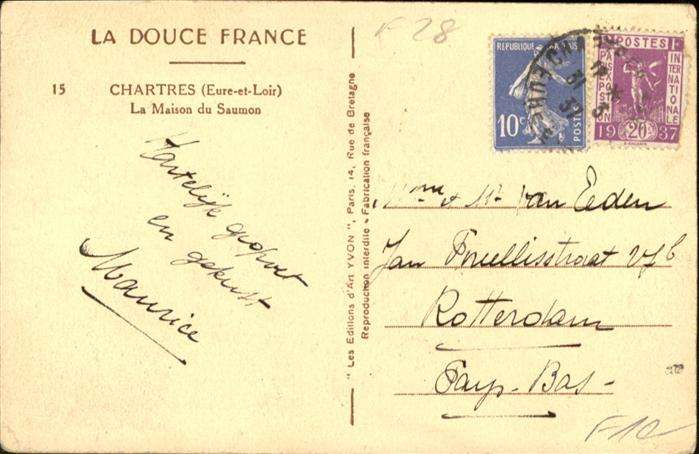 LA DOUCE FRANCE
15 CHARTRES (Eure-et-Loir)
La Maison du Saumon
Hartelijk gegroet
en gekust
Maurice
" Les Editions d'Art YVON ", Paris, 14, Rue de Bretagne
Reproduction interdite - Fabrication française
F 28
REPUBLIQUE FRANÇAISE
10c
POSTES
POSTES 1F
EXPOSITION INTERNATIONALE
PARIS
1937
20c
CHARTRES
Mme & Mr Van Eeden
Jan Fruellisstraat 27b
Rotterdam
Pays-Bas-
F10